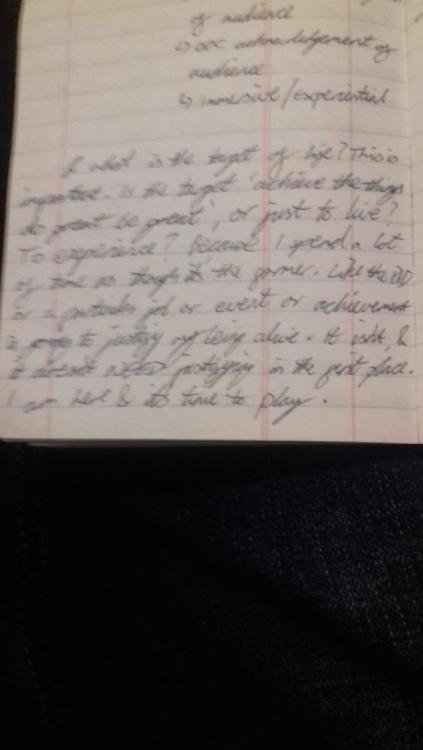 of audience
↳ acknowledgement of
audience
↳ immersive/experiential
& what is the target of life? This is
important. Is the target 'achieve the things
be great', or just to live?
To experience? Because I spend a lot
of time as though it's the former. Like the PhD
or a particular job or event or achievement
is going to justify my being alive. It isn't &
it doesn't NEED justifying in the first place.
I am here & it's time to play.